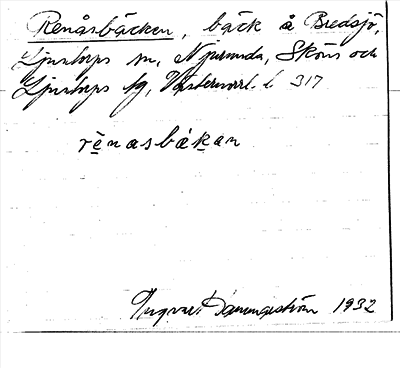 Renåsbäcken, bäck å Bredsjö,
Ljustorps sn, Njurunda, Sköns och
Ljustorps tg, Västernorrl. l 317
rènasbäkan
Ingvar Dammeström 1932